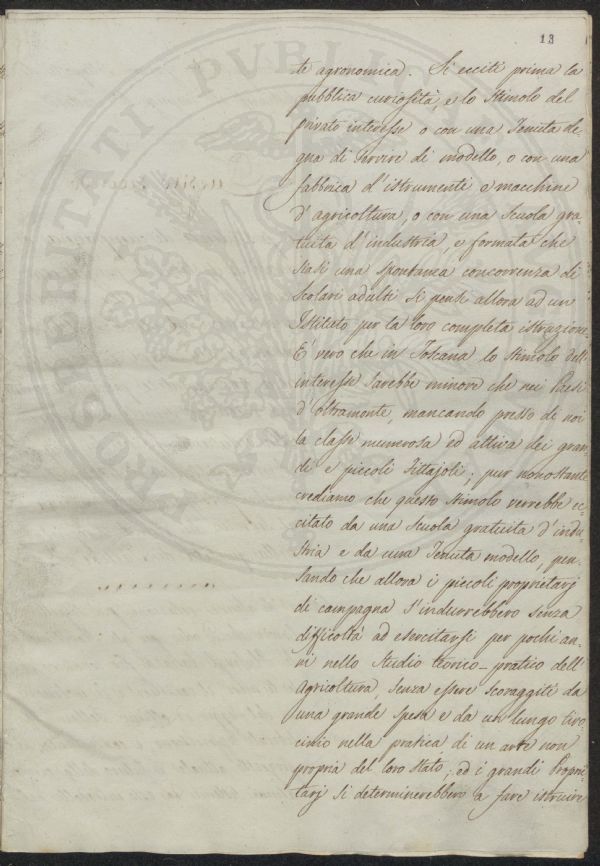 13
te agronomica. Si ecciti prima la
pubblica curiosità, e lo stimolo del
privato interesse o con una Tenuta de-
gna di servire di modello, o con una
fabbrica d'istrumenti e macchine
d'agricoltura, o con una Scuola gra-
tuita d'industria, e formata che
siasi una spontanea concorrenza di
Scolari adulti si pensi allora ad un
Istituto per la loro completa istruzione.
È vero che in Toscana lo stimolo dell'
interesse sarebbe minore che nei Paesi
d'oltramonte, mancando presso di noi
la classe numerosa ed attiva dei gran-
di e piccoli Fittajoli; pur nonostante
crediamo che questo stimolo verrebbe ec-
citato da una Scuola gratuita d'indu-
stria e da una Tenuta modello, pen-
sando che allora i piccoli proprietarj
di campagna s'indurrebbero senza
difficoltà ad esercitarsi per pochi an-
ni nello Studio teorico-pratico dell'
Agricoltura, senza essere scoraggiti da
una grande spesa e da un lungo tiro-
cinio nella pratica di un arte non
propria del loro stato; ed i grandi Proprie-
tarj si determinerebbero a fare istruire
PROSPERITATI PUBLICAE